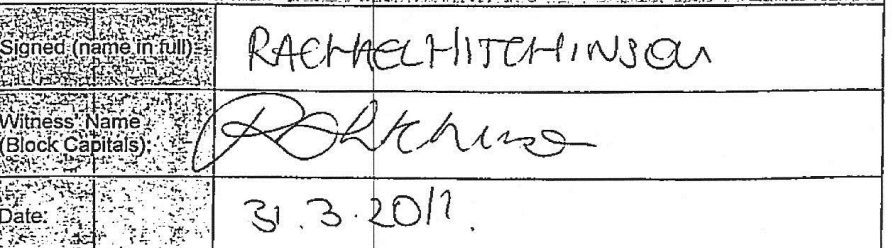 Signed (name in full): RACHAEL HITCHINSON
Witness' Name
(Block Capitals):
Date: 31.3.2011.